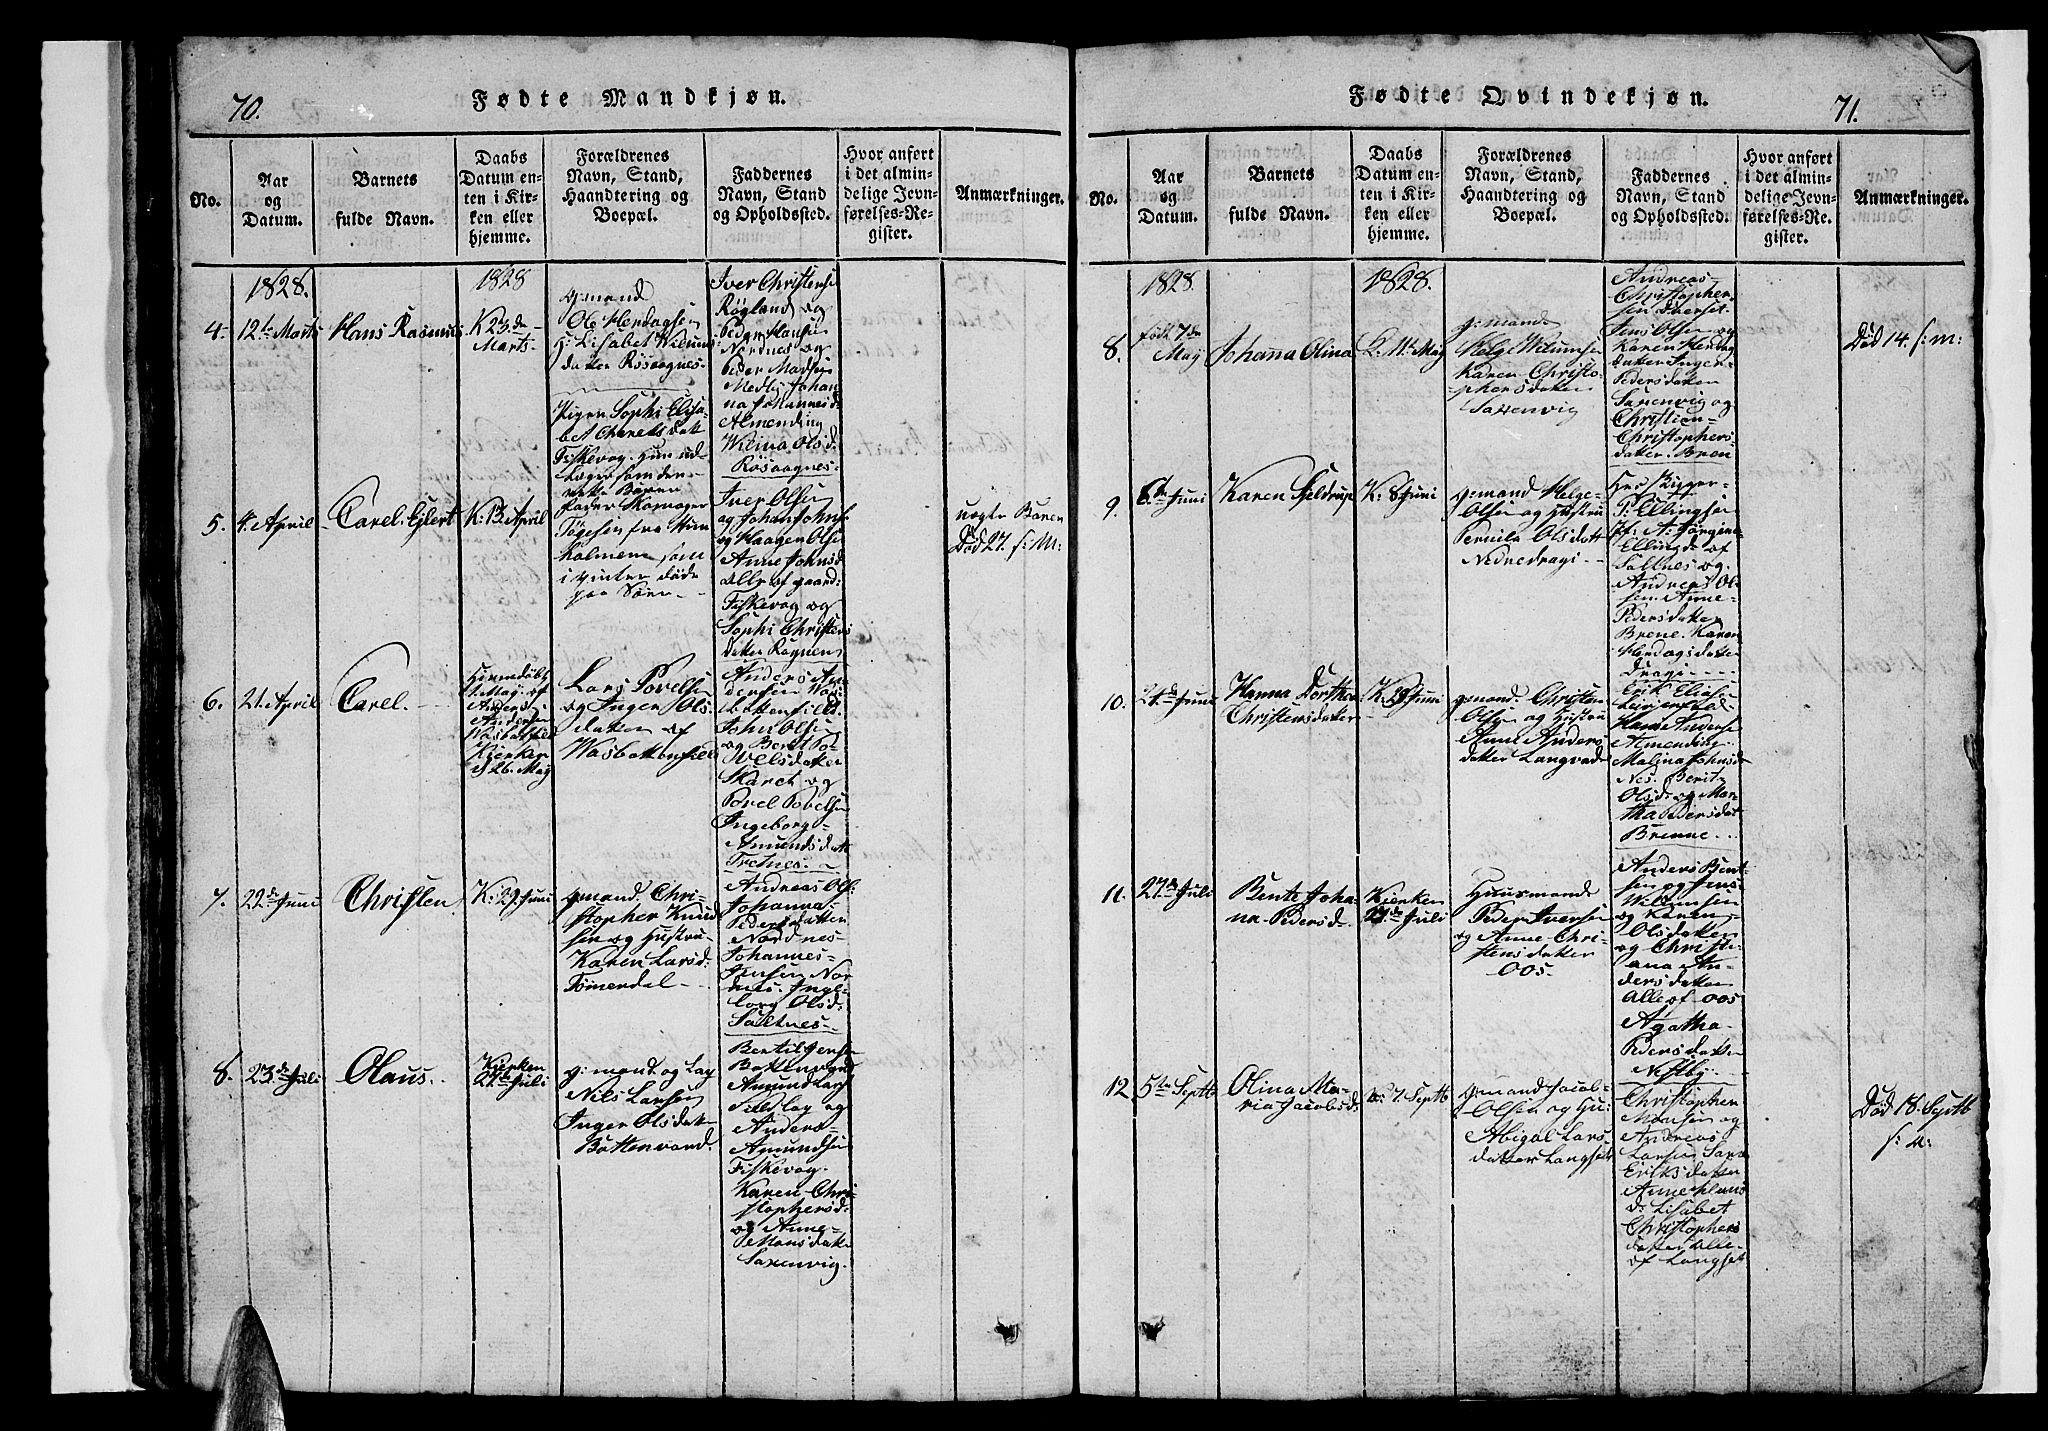 70.
Fødte Mandkjøn.
No.
Aar
og
Datum.
Barnets
fulde Navn.
Daabs
Datum en-
ten i Kir-
ken eller
hjemme.
Forældrenes
Navn, Stand,
Haandtering og
Boepæl.
Faddernes
Navn, Stand
og Opholdssted.
Hvor anført
i det almin-
delige Jevn-
førelses-Re-
gister.
Anmærkninger.
1828.
1828
4
12te Marts
Hans Rasmus
K 23de
Marts
gmand
Ole Herdagsen
Lisabet Willums
datter Rösaagnes
Iver Christens
Røgland og
Peder Hansen
Nordnes og
Peder Madsen
Medby Johan
na Johannesd
Almending
Wilina Olsd
Rosaagnes
5.
4. April
Carel Ejlert
K: 13 April
Pigen Sophi Elisa
bet
Fiskevog. Hun ud
Tøgesen fra
holmene som
i vinter døde
paa Søen
Iver Olsen
og Johan Johns
og Haagen Olsen
Anne Johnsd
alle af gaard
Fiskevog og
Sophi Christens
datter Rognen
uegte Baren
Død 27. s: M:
6.
21. April
Carel.
Hjemdøbt
Maj af
Anders
Andersen
Kierken
d 26. Maj
Lars Povelsen
og Inger Ols
datter af
Wasbottenfield
Anders An
dersen Was
bottenfield
John Olsen
og Berit Po
velsdatter
Skaret og
Povel Povelsen
Ingeborg
Amunds datt
Tvetnes.
7.
22de Juni
Christen
K: 29 Juni
gmand. Chri
stopher Knud
sen og Hustru
Karen Larsd:
Tömerdal
Andreas Ols
Johanna
Peders datter
Nordnes
Johannes
Jensen Nor
dnes. Inge
borg Olsd
Saltnes
8.
23de Juli
Olaus.
Kierken
27de Juli
g: mand og Lay
Nils Larsen
Inger Ols datt
Bottenvand.
Bertil Jensen
Bottenvand
Amund Lars
og
Anders
Amundsen
Fiskevog.
Karen Chri
stophersd:
og Anne
Monsdatt
Saxenvig.
Fødte Qvindekjøn.
71.
No.
Aar
og
Datum.
Barnets
fulde Navn.
Daabs
Datum en-
ten i Kir-
ken eller
hjemme.
Forældrenes
Navn, Stand,
Haandtering og
Boepæl.
Faddernes
Navn, Stand
og Opholdssted.
Hvor anført
i det almin-
delige Jevn-
førelses-Re-
gister.
Anmærkninger.
1828.
1828.
8.
født 7de
May
Johanna Olina
11te May
g: mand
Helge Wilumsen
Karen Christo
phersdatter
Saxenvig
Andreas
Christopher
sen
Jens Olsen og
Karen Herdag
datter Inger
Pedersdatter
Saxenvig og
Christian
Christophers
datter. Bren
Død 14. s: m:
9.
6te Juni
Karen Fjeldrup
K: 8 Juni
g: mand Helge
Olsen og Hustru
Pernila Olsdatt
Nedredragi
P: Ellingsen
Jørgine
Ellingd af
Saltnes og
Andreas Ol
sen. Anne
Pedersdatter
Brene. Karen
Herdagsdatter
Dragi
10.
24de Juni
Hanna Dorthea
Christensdatter
K. 29 Juni
gmand. Christen
Olsen og Hustru
Anne Anders
datter Langvad
Erik Eliasen
Hans Anders
Almending
Malina Johnsd
Nes. Berit
Olsd og Mar
tha Pedersdat
Brenne
11.
27de Juli
Bente Joha
na Pedersd
Kierken
27de Juli
Huusmand
Peder Iversen
og Anne Chri
stensdatter
Oos.
Anders Bent
sen og Jens
Wilumsen
og Karen
Olsdatter
og Christi
ana An
dersdatter
alle af Oos
Agatha
Pedersdatter
Nestby
12
5te Septb
Olina Ma
ria Jacobsd:
K: 7. Septb
gmand Jacob
Olsen og Hu:
Abigal Lars
datter Langset
Christopher
Monsen og
Andreas
Larsen Sara
Eriksdatter
Anne Hans
d: Lisabet
Christophers
datter alle
af Langset
Død 18. Septb
s: M: